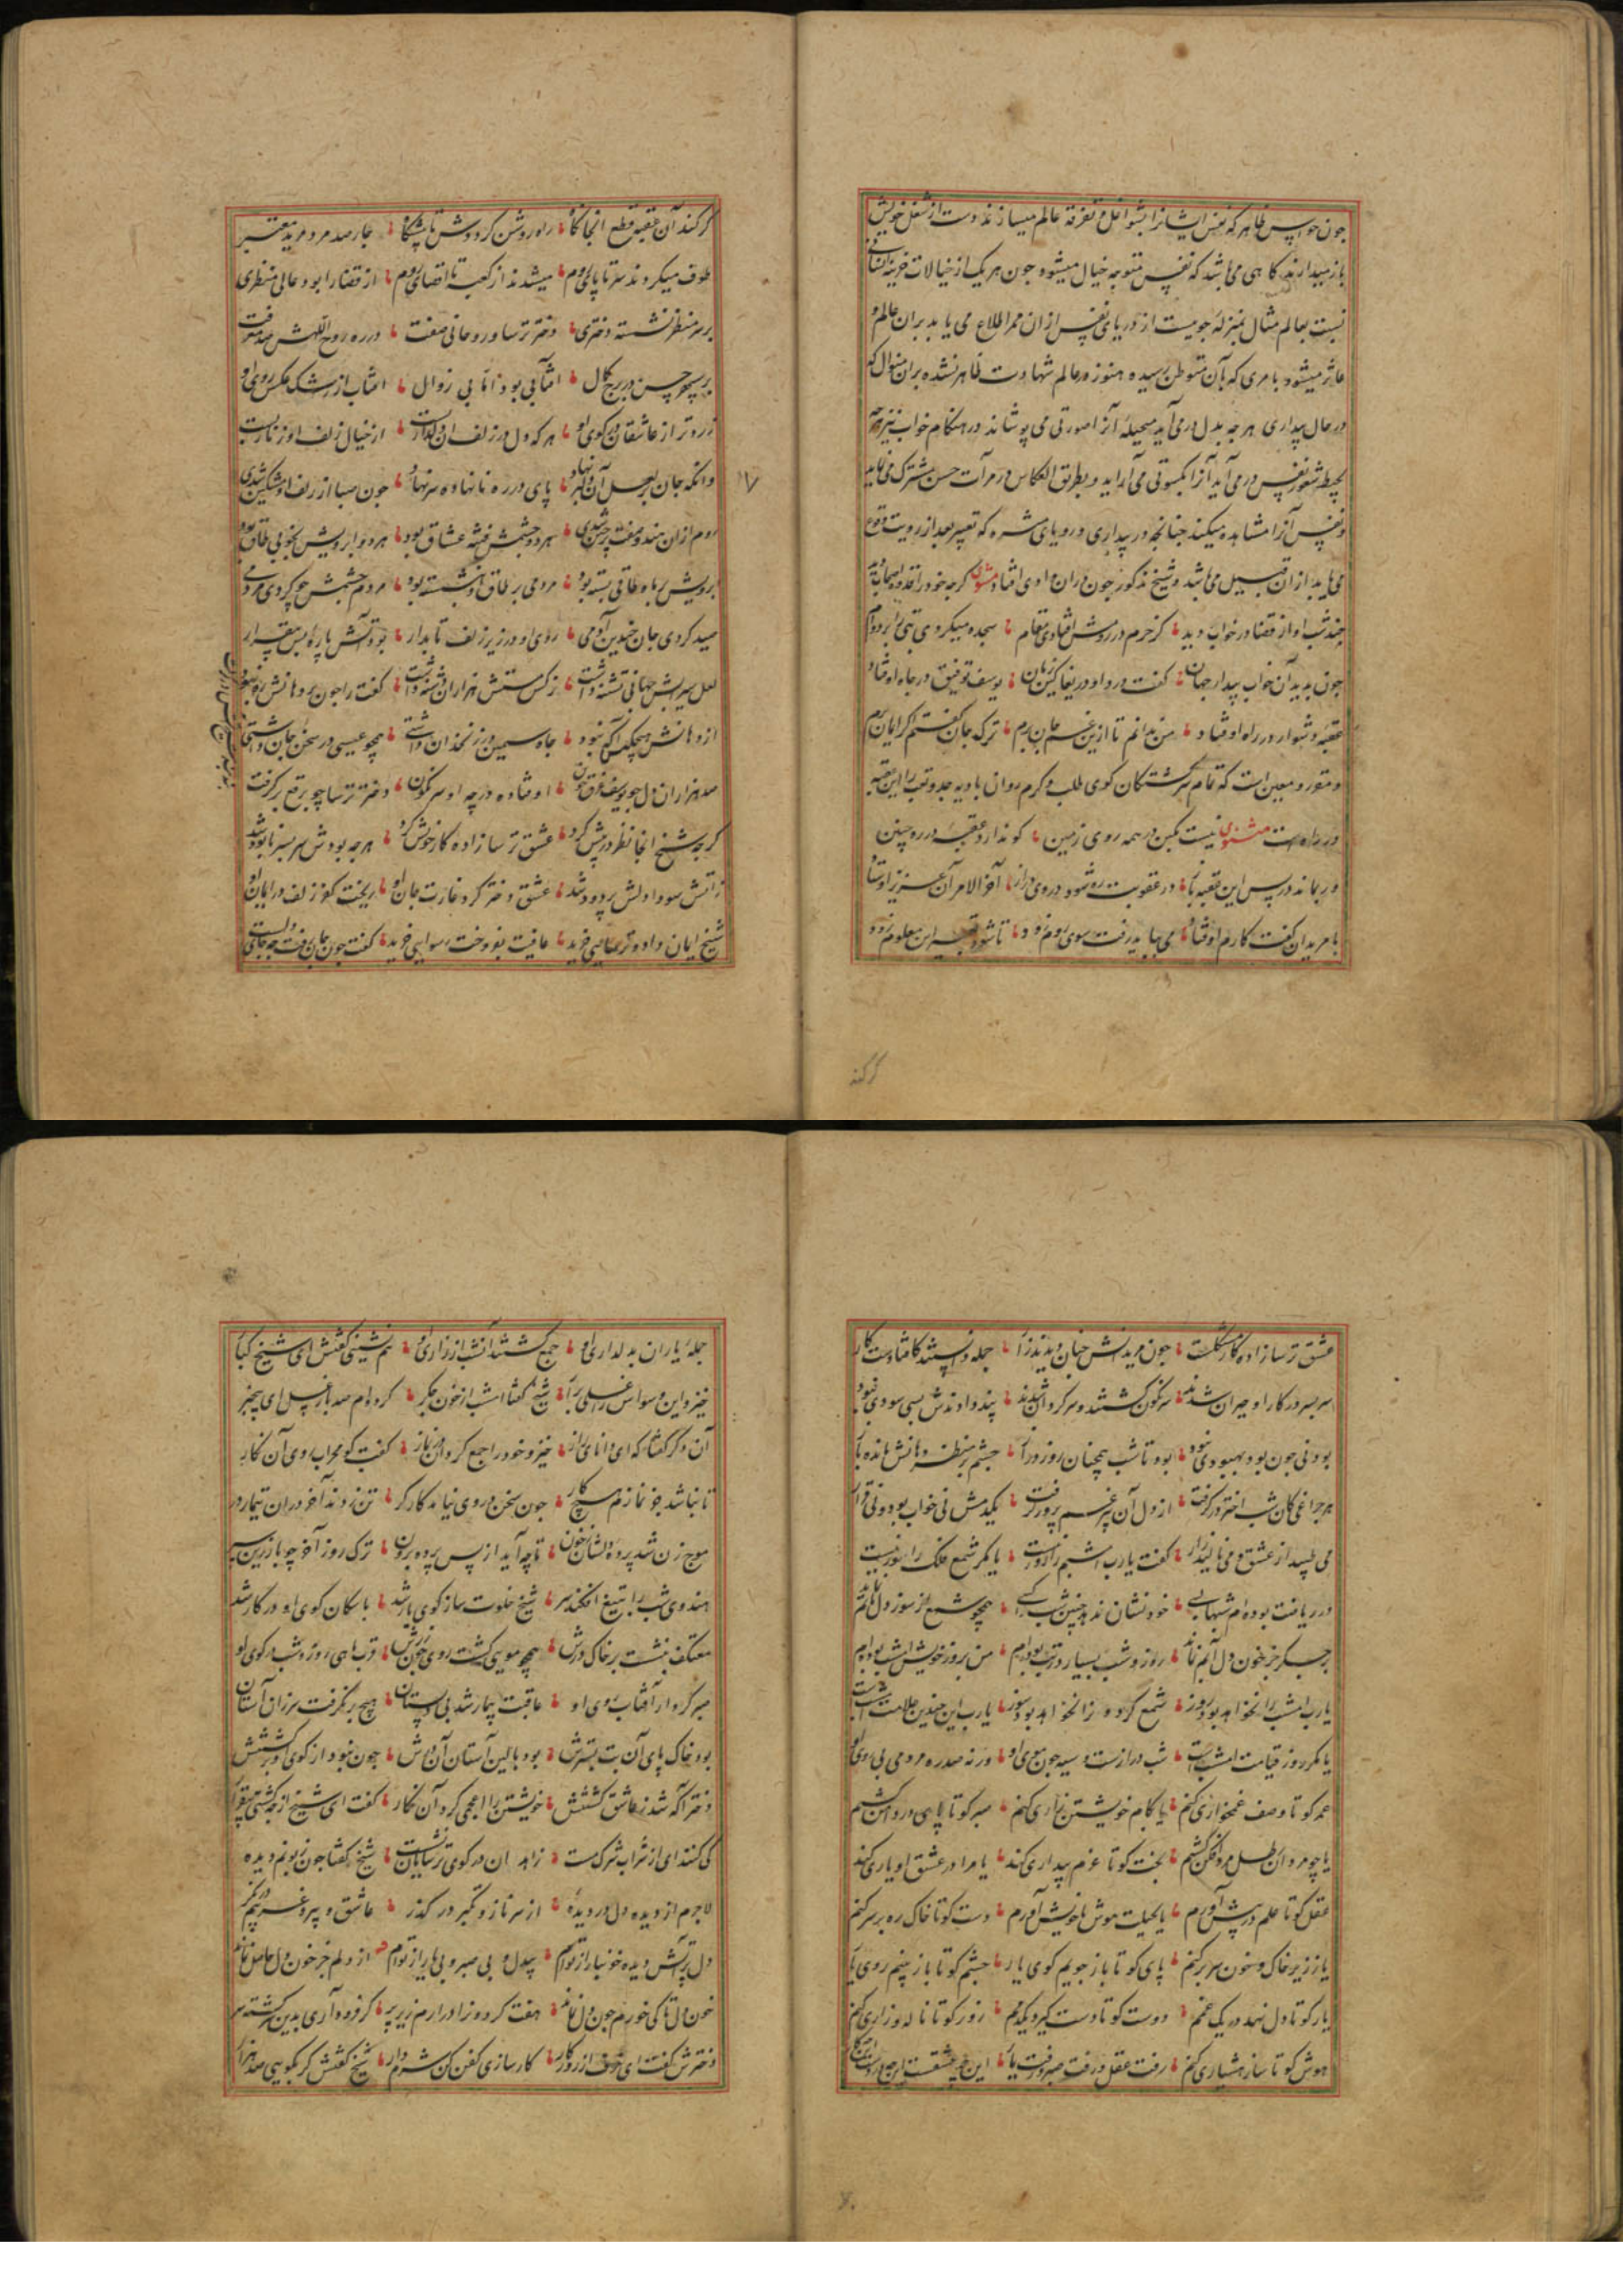 چون حواس ظاهر که نفس ایشانرا بشواغل و تفرقه عالم میسازند دست از شغل خویش
باز میدارند کاهی می باشد که نفس متوجه خیال میشود چون هر یک از خیالات خزینه انسانی
نسبت بعالم مثال بمنزله جویست از دریای نفس از ان ممر اطلاع می یابد بران عالم و
عاثر میشود بامری که بآن متوطن رسیده هنوز در عالم شهادت ظاهر نشده بران منوال که
در حال بیداری هر چه بدل در می آید متخیله آنرا صورتی می پوشاند در هنکام خواب نیز هر چه
بحیطه شعور نفس در می آید آنرا بکسوتی می آراید و بطریق انعکاس در مرآت حس مشترک می نماید
و نفس آنرا مشاهده میکند چنانچه در بیداری و رویای مبشره که تعبیر بعد از رویت وقوع
می یابد از ان قبیل می باشد و شیخ مذکور چون دران وادی افتاد مثنوی کرچه خود را قدوه اصحاب دید
چند شب او از قضا در خواب دید کز حرم در رومش افتادی مقام سجده میکردی بتی را بر دوام
چون بدید آن خواب بیدار جهان کفت دردا و دریغا کین زمان یوسف توفیق در چاه اوفتاد
عقبه دشوار در راه اوفتاد من ندانم تا ازین غم جان برم ترک جان کفتم اکر ایمان برم
و مقرر و معین است که تمام سرکشتکان کوی طلب و کرم روان بادیه جد و تعب را این عقبه
در راه است مثنوی نیست یکتن در همه روی زمین کو ندارد عقبه در ره چنین
ور بماند در پس این عقبه باز در عقوبت ره شود بر وی دراز آخر الامر آن عزیز اوستاد
با مریدان کفت کارم اوفتاد می بباید رفت سوی روم زود تا شود تعبیر این معلوم زود
کر کند
کر کند آن عقبه قطع انجایکاه راه روشن کرددش تا پیشکاه چار صد مرد مرید معتبر
طوف میکردند سر تا پای روم میشدند از کعبه تا اقصای روم از قضا را بود عالی منظری
بر سر منظر نشسته دختری دختر ترسا و روحانی صفت در ره روح اللهش صد معرفت
بر سپهر حسن در برج کمال افتابی بود اما بی زوال افتاب از رشک عکس روی او
زردتر از عاشقان در کوی او هر که دل در زلف ان دلدار بست از خیال زلف او زنار بست
وانکه جان بر لعل آن دلبر نهاد پای در ره نانهاده سر نهاد چون صبا از زلف او مشکین شدی
روم ازان هندو صفت پرچین شدی هر دو چشمش فتنه عشاق بود هر دو ابرویش بخوبی طاق بود
ابرویش بر ماه طاقی بسته بود مردمی بر طاق او بنشسته بود مردم چشمش چو کردی مردمی
صید کردی جان چندین آدمی روی او در زیر زلف تابدار بود آتش پاره بس بیقرار
لعل سیرابش جهانی تشنه داشت نرکس مستش هزاران دشنه داشت کفت را چون بر دهانش ره نبود
از دهانش هیچکس آکه نبود چاه سیمین در زنخدان داشت همچو عیسی در سخن جان داشت
صد هزاران دل چو یوسف غرق خون اوفتاده در چه او سرنکون دختر ترسا چو برقع برکرفت
کرچه شیخ انجا نظر در پیش کرد عشق ترسازاده کار خویش کرد هر چه بودش سر بسر نابود شد
ز آتش سودا دلش پر دود شد عشق دختر کرد غارت جان او ریخت کفر زلف در ایمان او
شیخ ایمان داد و ترسایی خرید عافیت بفروخت رسوایی خرید کفت چون جان رفت چه جای دلست
عشق ترسازاده کار مشکلست چون مریدانش چنان دیدند زار جمله دانستند کافتادست کار
سر بسر در کار او حیران شدند سرنکون کشتند و سرکردان شدند پند دادندش بسی سودی نبود
بودنی چون بود بهبودی نبود بود تا شب همچنان روز دراز چشم بر منظر دهانش مانده باز
هر چراغی کان شب اختر درکرفت از دل آن پیر غم پرور درکرفت یکدمش نی خواب بود و نی قرار
می طپید از عشق و می نالید زار کفت یارب امشبم را روز نیست یا مکر شمع فلک را سوز نیست
در ریاضت بوده ام شبها بسی خود نشان ندهد چنین شب را کسی همچو شمع از سوز دل تابم نماند
بر جکر جز خون دل آبم نماند روز و شب بسیار در تب بوده ام من بروز خویش امشب بوده ام
یارب امشب را نخواهد بود روز شمع کردون را نخواهد بود سوز یارب این چندین علامت امشبست
یا مکر روز قیامت امشبست شب درازست و سیه چون موی او ورنه صد ره مردمی بی روی او
عمر کو تا وصف غمخواری کنم یا بکام خویشتن زاری کنم صبر کو تا پای در دامن کشم
یا چو مردان رطل مردافکن کشم بخت کو تا عزم بیداری کند یا مرا در عشق او یاری کند
عقل کو تا علم در پیش آورم یا بحیلت هوش با خویش آورم دست کو تا خاک ره بر سر کنم
یا ز زیر خاک و خون سر بر کنم پای کو تا باز جویم کوی یار چشم کو تا باز بینم روی یار
یار کو تا دل نهد در یک غمم دوست کو تا دست کیرد یکدمم زور کو تا ناله و زاری کنم
هوش کو تا ساز هشیاری کنم رفت عقل و رفت صبر و رفت یار این چه عشقست این چه دردست این چه کار
جمله یاران بدلداری او جمع کشتند آنشب از زاری او همنشینی کفتش ای شیخ کبار
خیز و این وسواس را غسلی برآر شیخ کفتا امشب از خون جکر کرده ام صد بار غسل ای بیخبر
آن دکر کفتا که ای دانای راز خیز و خود را جمع کردان در نماز کفت کو محراب روی آن نکار
تا نباشد جز نمازم هیچ کار چون سخن در وی نیامد کارکر تن زدند آخر دران تیمار در
موج زن شد پرده دلشان ز خون تا چه آید از پس پرده برون ترک روز آخر چو با زرین سپر
هندوی شب را بتیغ افکند سر شیخ خلوت ساز کوی یار شد با سکان کوی او در کار شد
معتکف بنشست بر خاک درش همچو مویی کشت روی چون زرش قرب ماهی روز و شب در کوی او
صبر کرد از آفتاب روی او عاقبت بیمار شد بی دلستان هیچ برنکرفت سر زان آستان
بود خاک پای آن بت بسترش بود بالین آستان آن درش چون نبود از کوی او برکشتنش
دختر آکه شد ز عاشق کشتنش خویشتن را اعجمی کرد آن نکار کفت ای شیخ از چه کشتی بیقرار
کی کنند ای از شراب شرک مست زاهدان در کوی ترسایان نشست شیخ کفتا چون زبونم دیده
لاجرم از دیده دل دزدیده از سر ناز و تکبر در کذر عاشق و پیر و غریبم در نکر
دل پر آتش دیده خونبار از توام بیدل و بی صبر و بی یار از توام از دلم جز خون دل حاصل نماند
خون دل تا کی خورم چون دل نماند هفت کردون را درارم زیر پر کر فرود آری بدین سرکشته سر
دخترش کفت ای خرف از روزکار ساز کافور و کفن کن شرم دار شیخ کفتش کر بکویی صد هزار